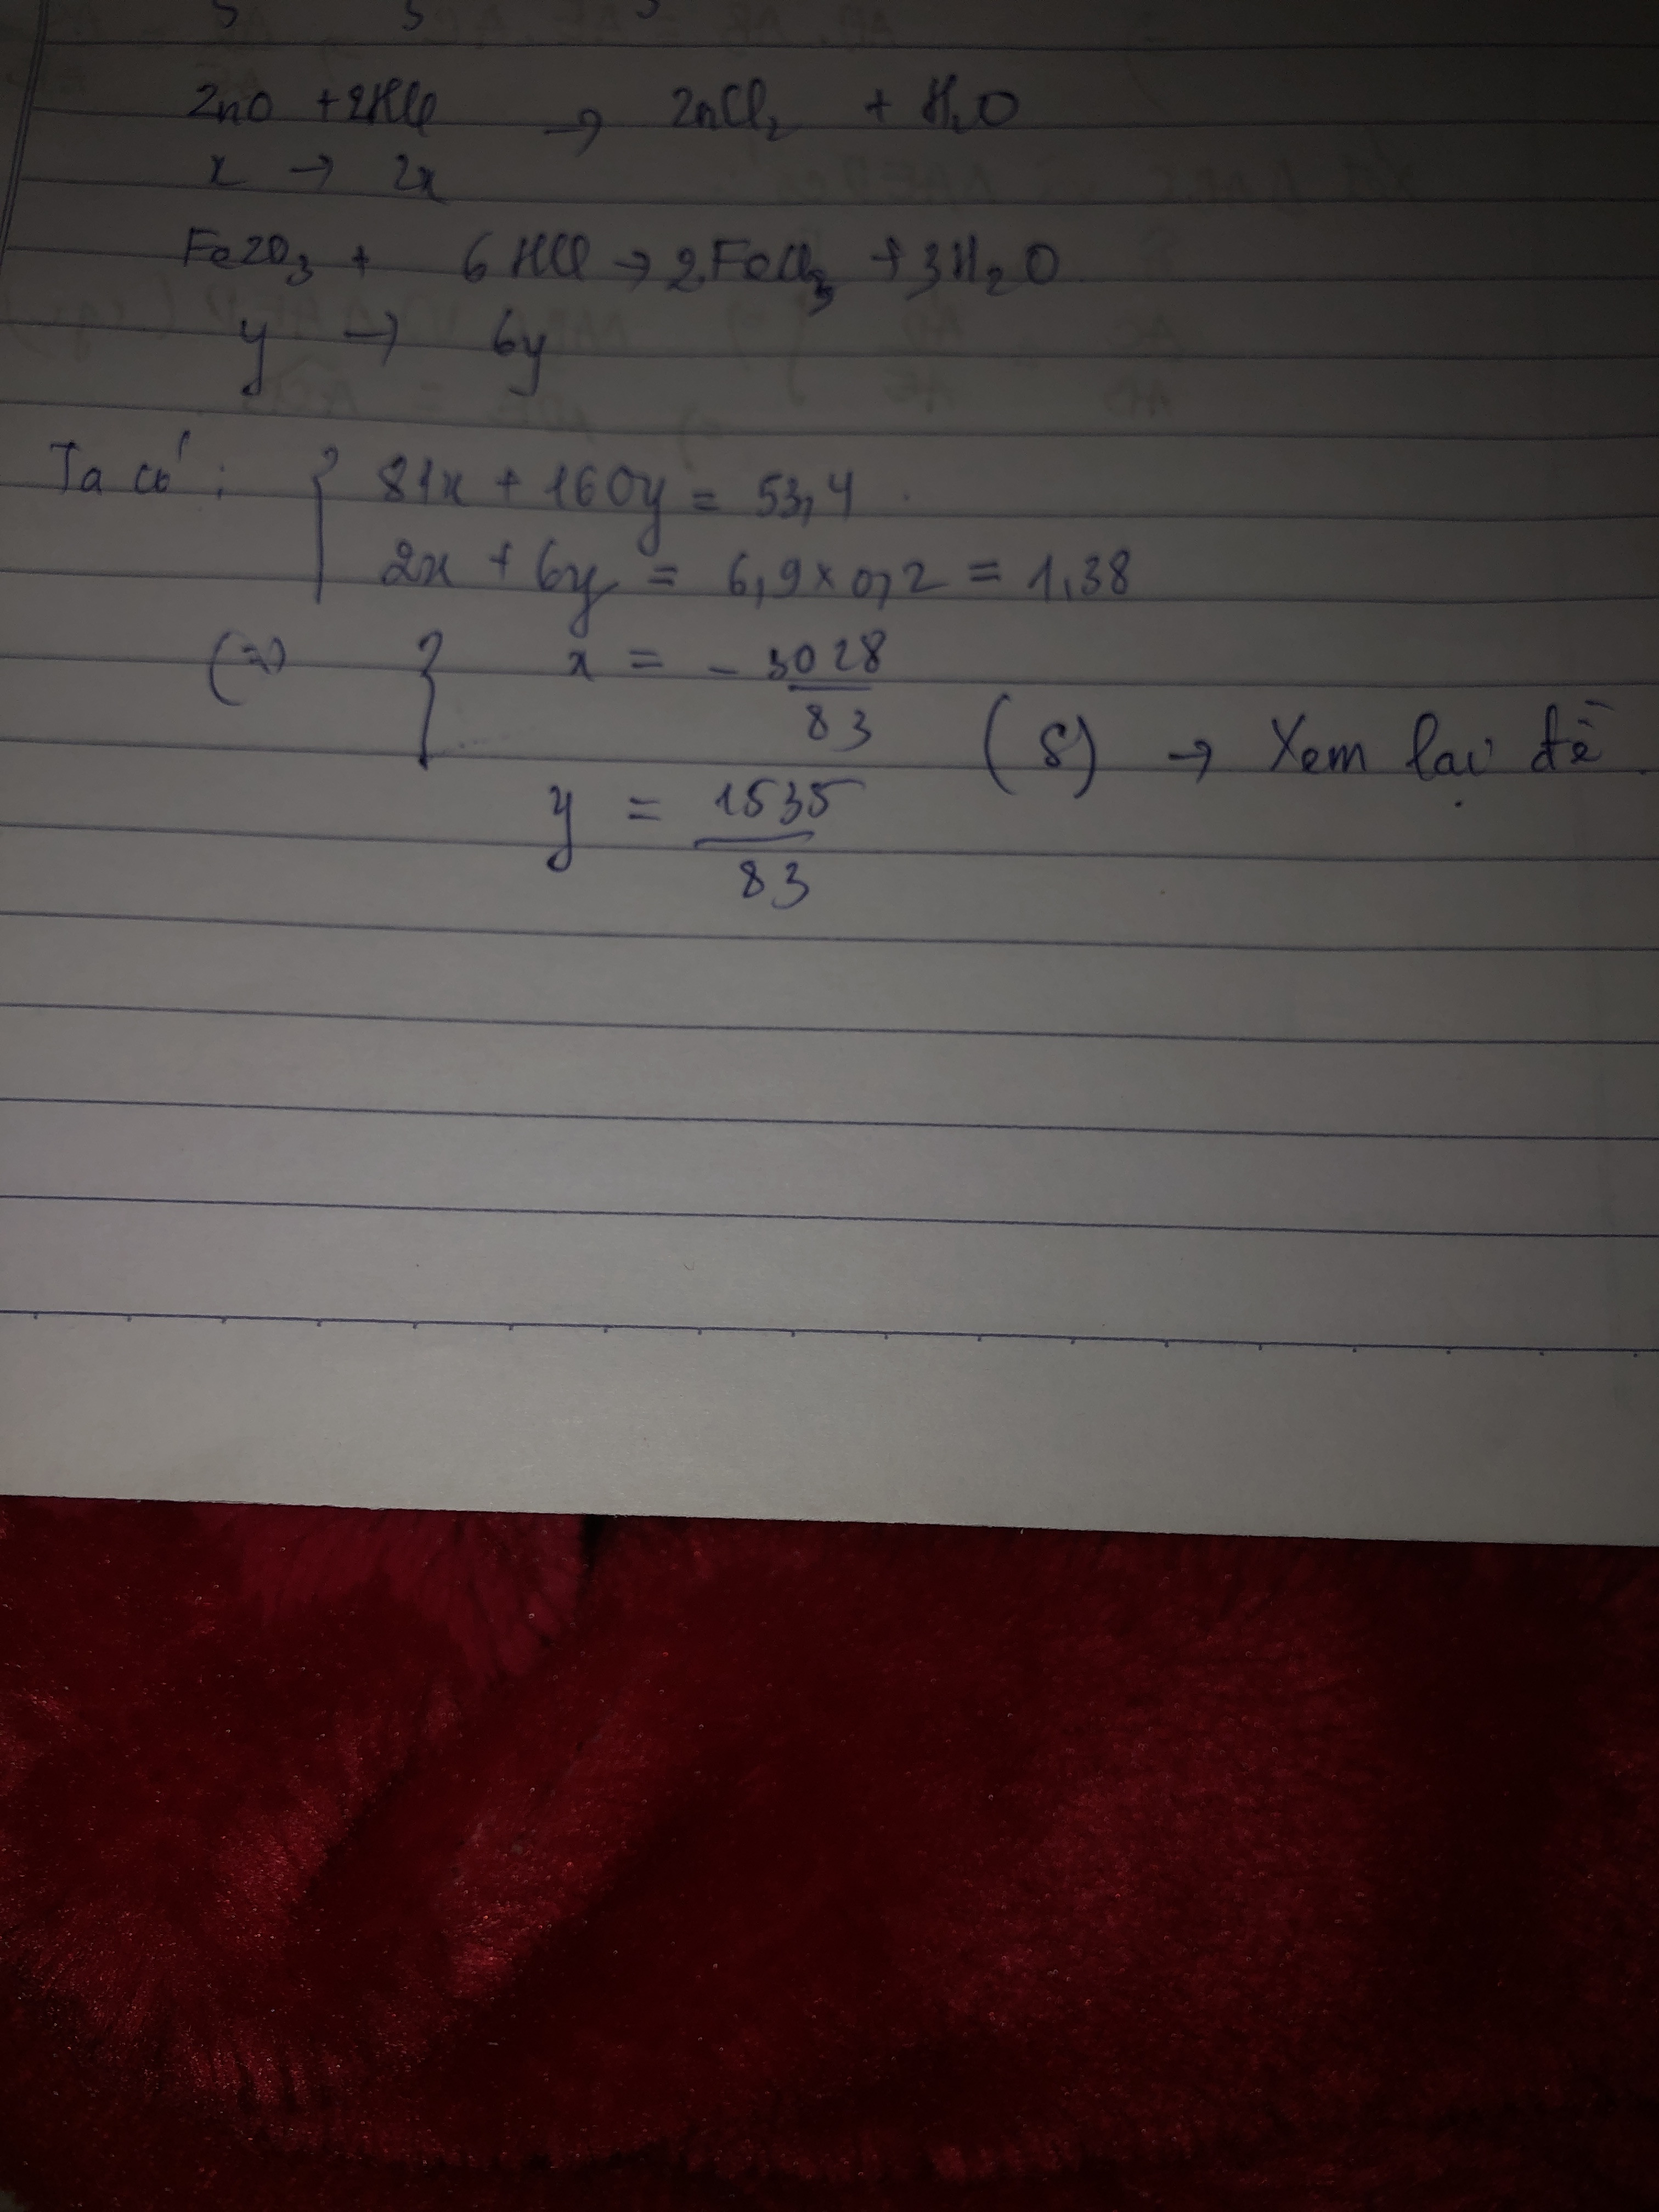 ZnO + 2HCl → ZnCl₂ + H₂O
x → 2x
Fe2O₃ + 6HCl → 2FeCl₃ + 3H₂O
y → 6y
Ta có: { 81x + 160y = 53,4
2x + 6y = 6,9 x 0,2 = 1,38
(=) { x = -3028/83
(S) → Xem lại đề
y = 1535/83